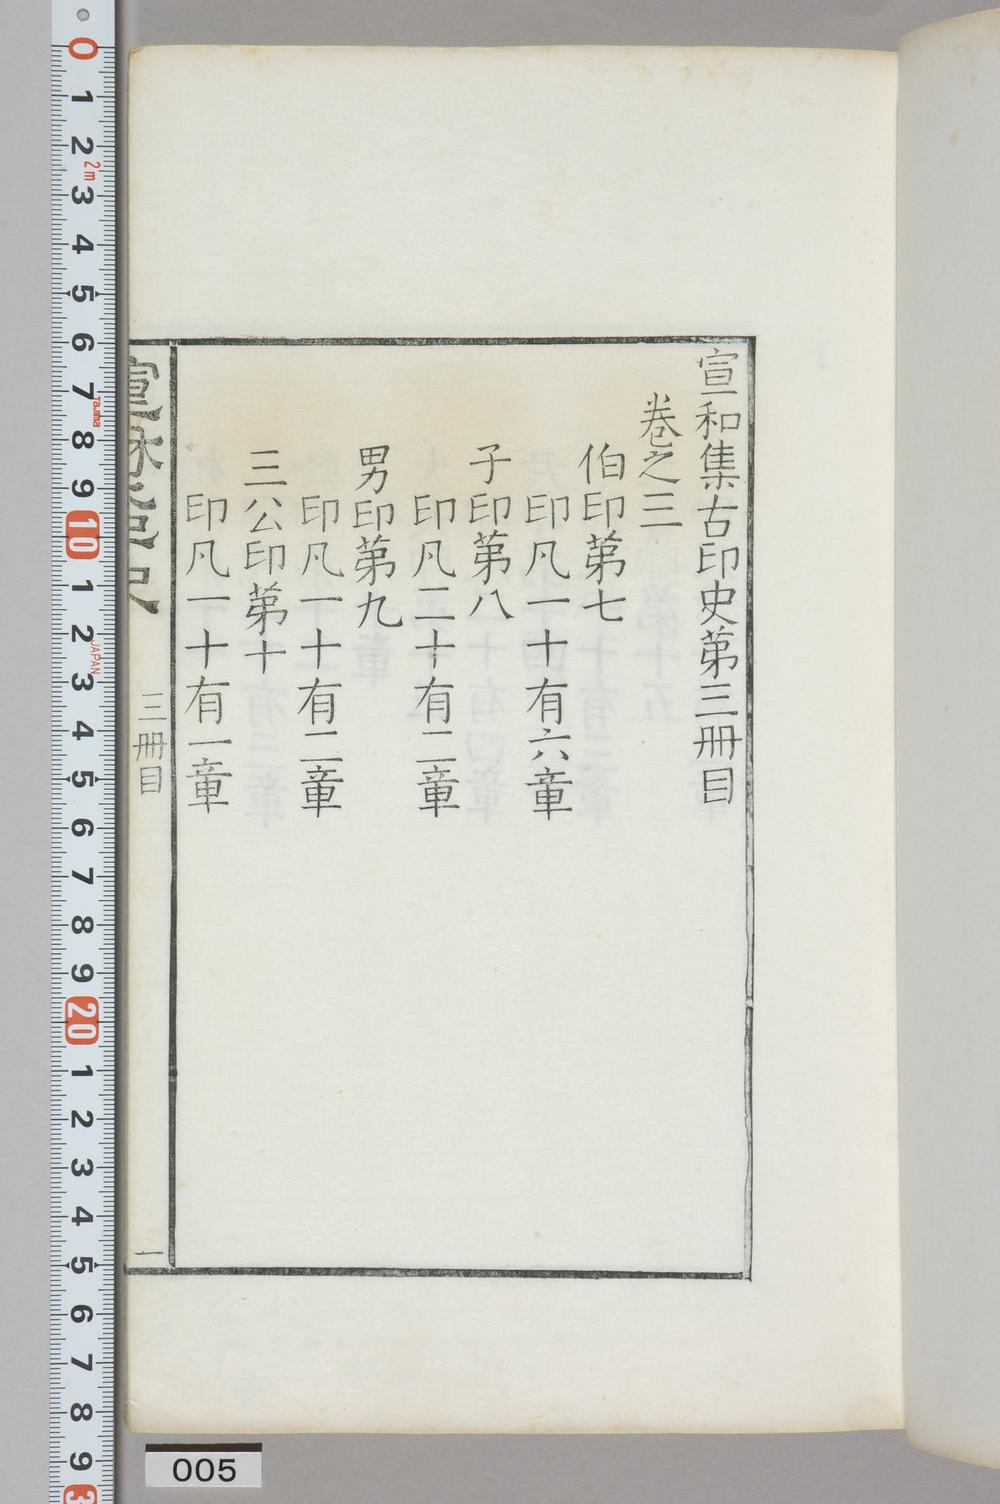 宣和集古印史第三冊目
卷之三
伯印第七
印凡一十有六章
子印第八
印凡二十有二章
男印第九
印凡一十有二章
三公印第十
印凡一十有一章
三冊目
一
0
1
2
2m
3
4
5
6
7
Tajima
8
9
10
1
2
JAPAN
3
4
5
6
7
8
9
20
1
2
3
4
5
6
7
8
9
005